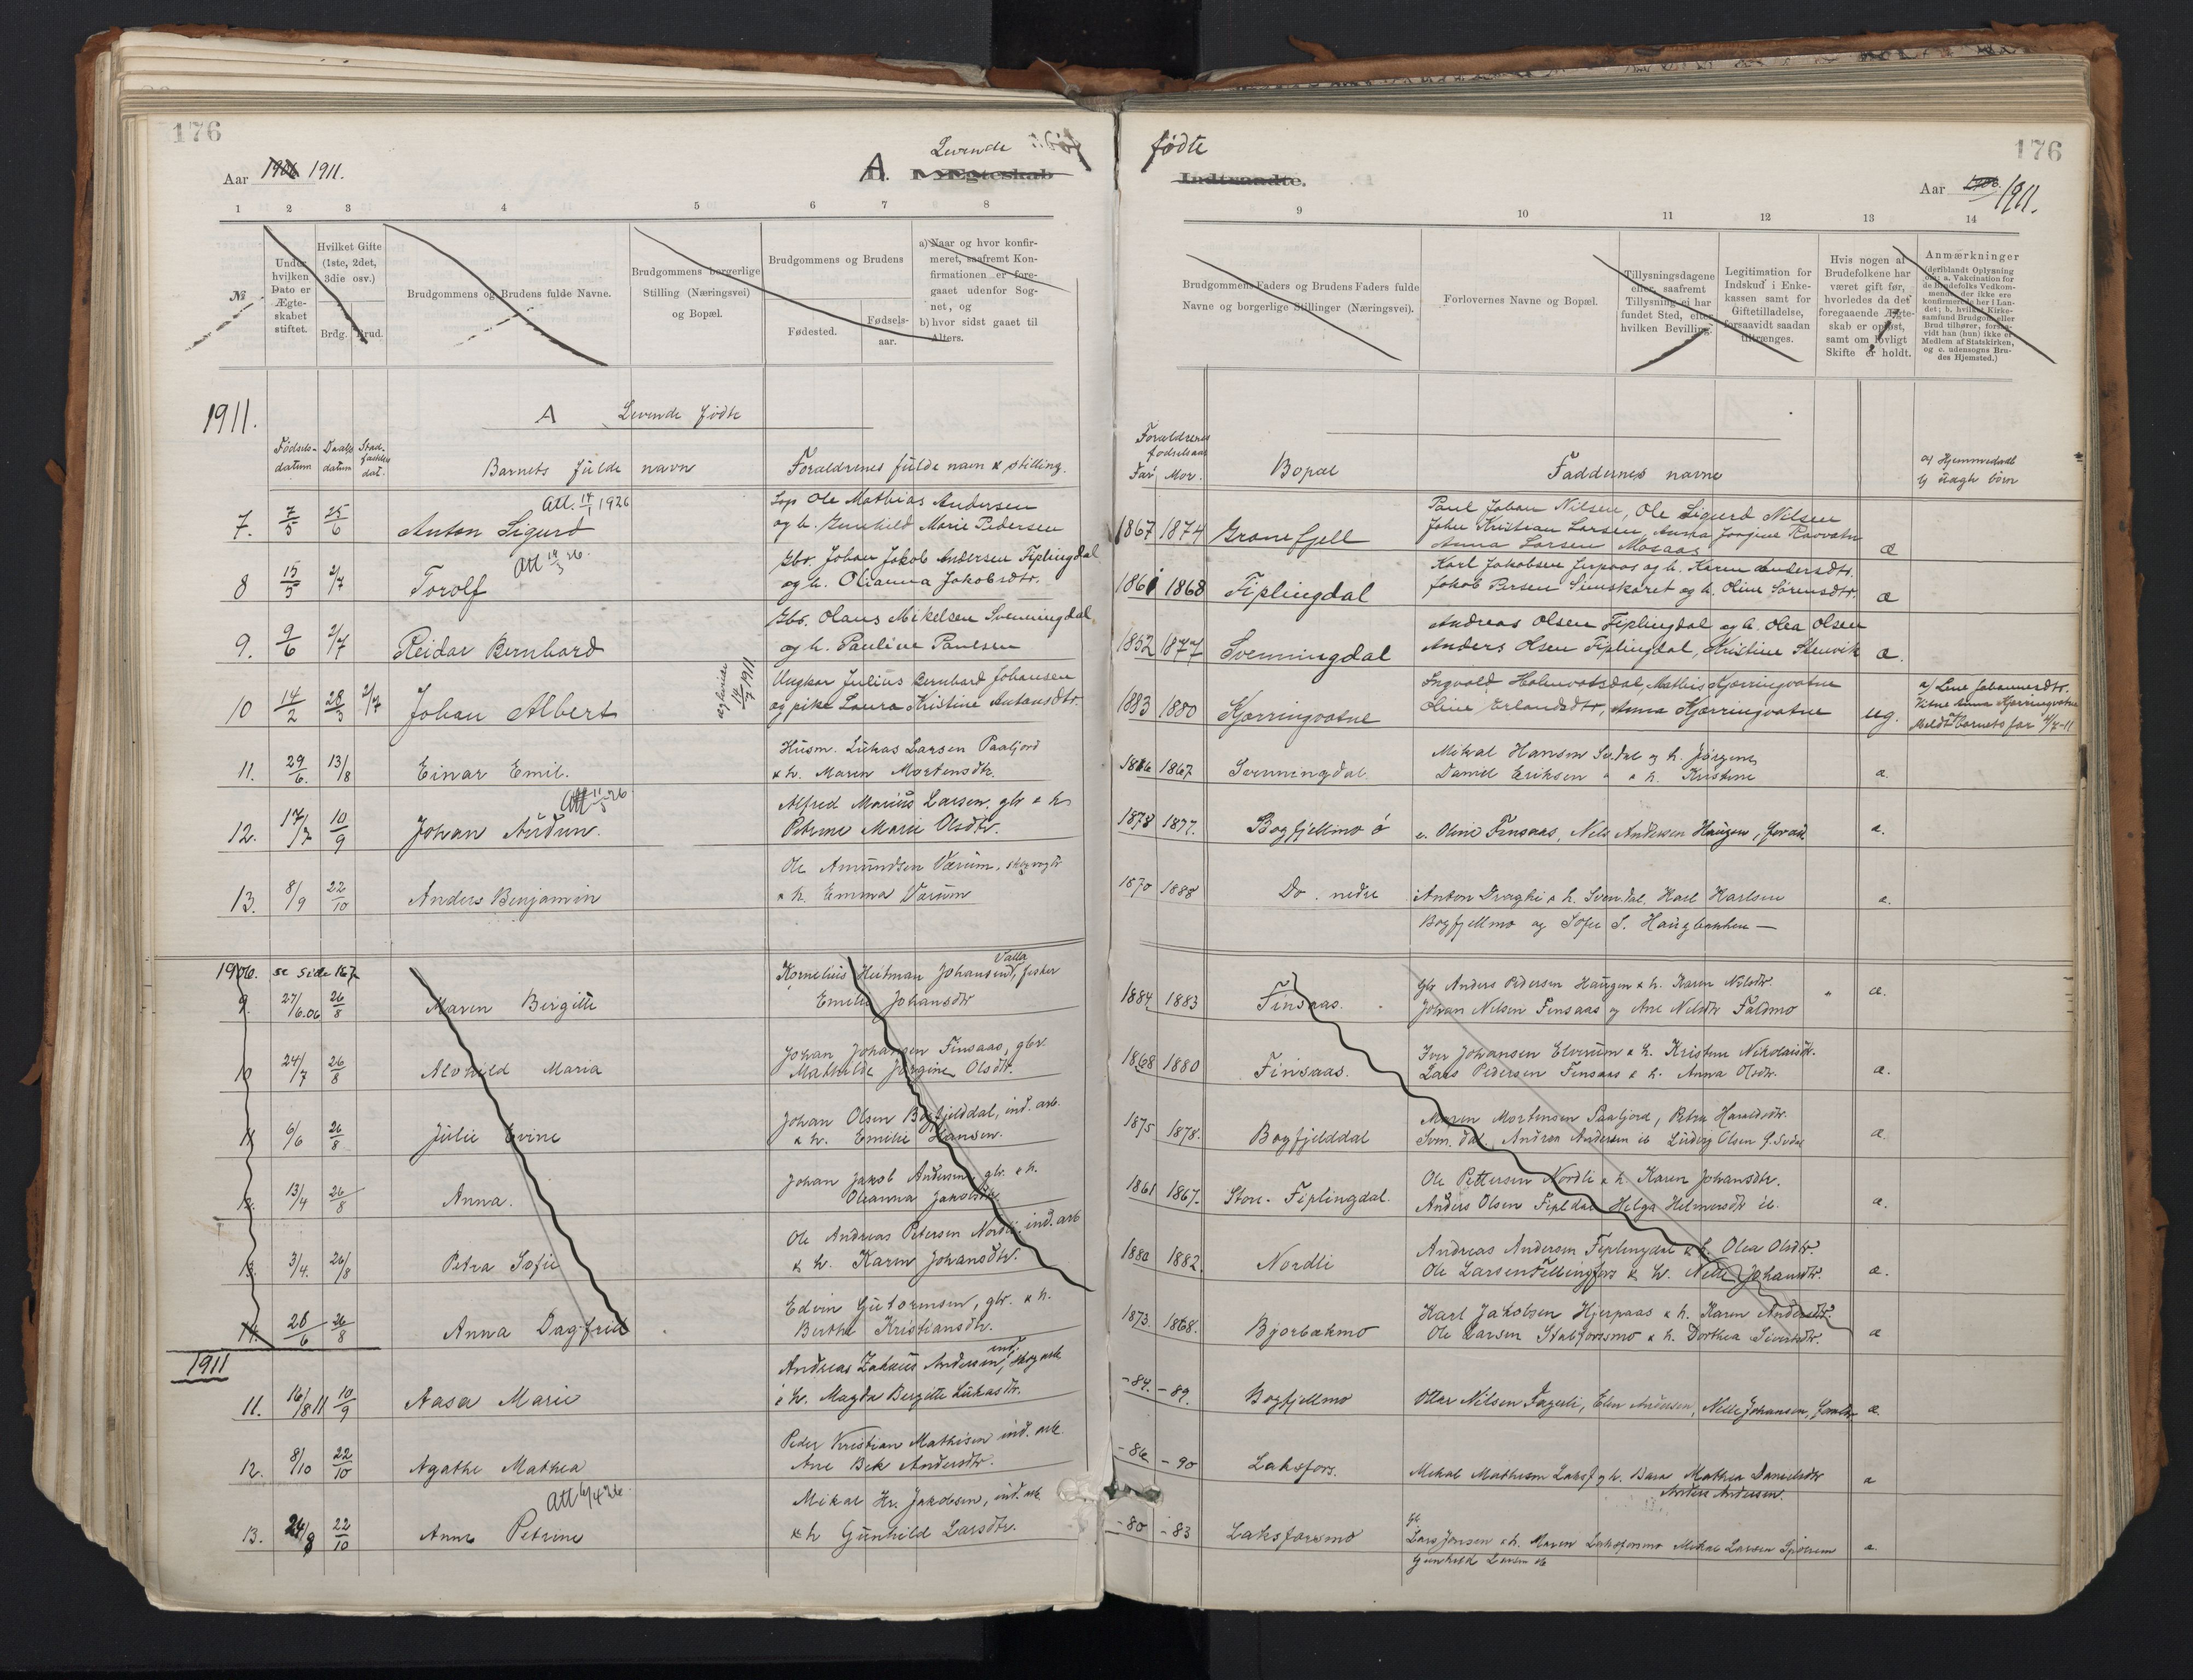 176
Aar 1906 1911.
A. Levende
D. Ægteskab
1 2 3 4 5 6 7 8
№
Under hvilken Dato er Ægteskabet stiftet.
Hvilket Gifte (1ste, 2det, 3die osv.)
Brdg. Brud.
Brudgommens og Brudens fulde Navne.
Brudgommens borgerlige Stilling (Næringsvei) og Bopæl.
Brudgommens og Brudens
Fødested.
Fødsels-aar.
a) Naar og hvor konfir-
meret, saafremt Kon-
firmationen er fore-
gaaet udenfor Sog-
net, og
b) hvor sidst gaaet til
Alters.
1911. A Levende fødte
Fødsels-datum Daabs datum Stad-fæstelses dat.
Barnets fulde navn
Forældrenes fulde navn & stilling.
7. 7/5 25/6 Anton Sigurd Att. 14/1 1926
Ole Mathias Andersen
og h. Gunhild Marie Pedersen
8 15/5 2/7 Torolf Att 19/3 26.
Gbr. Johan Jakob Andersen Fiplingdal
og h. Olianna Jakobsdtr.
9. 9/6 2/7 Reidar Bernhard
Gbr. Olaus Mikelsen Svenningdal
og h. Pauline Paulsen
10 14/2 28/3 2/7 Johan Albert
14/7 1911
Ungkar Julius Bernhard Johansen
og pike Laura Kristine Antonsdtr.
11. 29/6. 13/8 Einar Emil.
Husm. Lukas Larsen Paaljord
& h. Maren Mortensdtr.
12. 17/7 10/9 Johan Audun. Att 11/5 26
Alfred Marius Larsen, gbr & h
Petrine Marie Olsdtr.
13. 8/9 22/10 Anders Benjamin
Ole AmundsenVærum, skogvogtr
& h. Emma Værum
1906. se side 167
9. 27/6.06 26/8 Maren Bergitte
Kornelius Heitman Johansen Valla, fisker
Emelie Johansdtr
10 24/7 26/8 Alvhild Maria
Johan Johansen Finsaas, gbr
Mathilde Jørgine Olsdtr.
11 6/6 26/8 Julie Evine
Johan Olsen Bogfjelddal, ind. arb.
& h. Emilie Hansen.
12. 13/4 26/8 Anna.
Johan Jakob Andersen, gbr. & h.
Oleanna Jakobsdtr
13. 3/4. 26/8 Petra Sofie
Ole Andreas Petersen Nordli, ind. arb
& h. Karen Johansdtr.
14. 26/6 26/8 Anna Dagfrid
Edvin Guttormsen, gbr. & h.
Berthe Kristiansdtr.
1911
11. 16/8 11 10/9 Aasa Marie
Andreas Zakæus Andersen, ind. skogarb
& h. Magda Bergitte Lukasdtr.
12. 8/10 22/10 Agathe Mathea
Peder Kristian Mathisen ind. arb.
Ane Bek Andersdtr.
13. 24/8 22/10 Anne Petrine Att 6/4 26.
Mikal Kr. Jakobsen, ind. arb.
& h Gunhild Larsdtr.
fødte
Indtraadte.
176
Aar 1906 1911.
9 10 11 12 13 14
Brudgommens Faders og Brudens Faders fulde
Navne og borgerlige Stillinger (Næringsvei).
Forlovernes Navne og Bopæl.
Tillysningsdagene
eller, saafremt
Tillysning ei har
fundet Sted, efter
hvilken Bevilling.
Legitimation for
Indskud i Enke-
kassen samt for
Giftetilladelse,
forsaavidt saadan
tiltrænges.
Hvis nogen af
Brudefolkene har
været gift før,
hvorledes da det
foregaaende Ægte-
skab er opløst,
samt om lovligt
Skifte er holdt.
Anmærkninger
(deriblandt Oplysning
om: a. Vakcination for
de Brudefolks Vedkom-
mende, der ikke ere
konfirmerede her i Lan-
det; b. hvilket Kirke-
samfund Brudgom eller
Brud tilhører, forsaa-
vidt han (hun) ikke er
Medlem af Statskirken,
og c. udensogns Bru-
des Hjemsted.)
Forældrenes fødselsaar
Far Mor.
Bopæl
Faddernes navne
a) Hjemmedaab
b) uægte børn
1867 1874 Granefjell
Paul Johan Nilsen, Ole Sigurd Nilsen
John Kristian Larsen, Anna Jorgine Ravvatn
Anna Larsen Mosaas æ
1861 1868 Fiplingdal
Karl Jakobsen Jerpaas og h. Karen Andersdtr.
Jakob Persen Simskaret og h. Oline Sørensdtr. æ
1852 1877 Svenningdal
Andreas Olsen Fiplingdal og h. Olea Olsen
Anders Olsen Fiplingdal, Kristine Stenvik æ.
1883 1880 Kjærringvatne
Ingvald Holmvatsdal, Mathis Kjærringvatne
Oline Erlandsdtr, Anna Kjærringvatne ug.
a) Lene Johannesdtr.
Vitne Anna Kjærringvatne
Meldt barnets far 4/7-11
1866 1867 Svenningdal.
Mikal Hansen Sv.dal og h. Jørgine
Daniel Eriksen " & h. Kristine æ.
1878 1877. Bogfjellmo ø
e. Oline Finsaas, Nels Andersen Haugen, foræld æ.
1870 1888 Do. nedre
Anton Draghi & h. Sven.dal, Karl Karlsen
Bogfjellmo og Sofie S. Haugbakken — æ.
1884 1883 Finsaas.
Gbr Anders Pedersen Haugen & h. Karen Nilsdtr.
Johan Nelsen Finsaas og Ane Nelsdtr Faldmo " æ.
1868 1880 Finsaas.
Iver Johansen Elverum & h. Kristine Nikolaisdtr.
Lars Pedersen Finsaas & h. Anna Olsdtr. æ.
1875 1878. Bogfjelddal
Maren Mortensen Paaljord, Petra Haraldsdtr.
Sven. dal. Andrea Andersen ib Ludvig Olsen æ
1861 1867. Store-Fiplingdal.
Ole Pettersen Nordli & h. Karen Johansdtr.
Anders Olsen Fipldal Helga Helmersdtr ib. æ.
1880 1882. Nordli
Andreas Andersen Fiplingdal & h. Olea Olsdtr.
Ole Larsen Fellingfors & h. Nelle Johansdtr. æ.
1873. 1868. Bjorbækmo
Karl Jakobsen Hjerpaas & h. Karen Andersdtr.
Ole Larsen Stabforsmo & h. Dorthea Sivertsdtr. æ
-84. -89. Bogfjellmo
Ottar Nilsen Fagerli, Elen Andersen, Nelle Johansen, foræld æ.
-86 -90 Laksfors.
Mikal Mathisen Laksf. og h. Bara Mathea Danielsdtr
Anders Andersen. æ
-80 -83 Laksforsmo
Lars Jonsen & h. Maren Laksforsmo Mikal Larsen
Gunhild Larsen ib æ